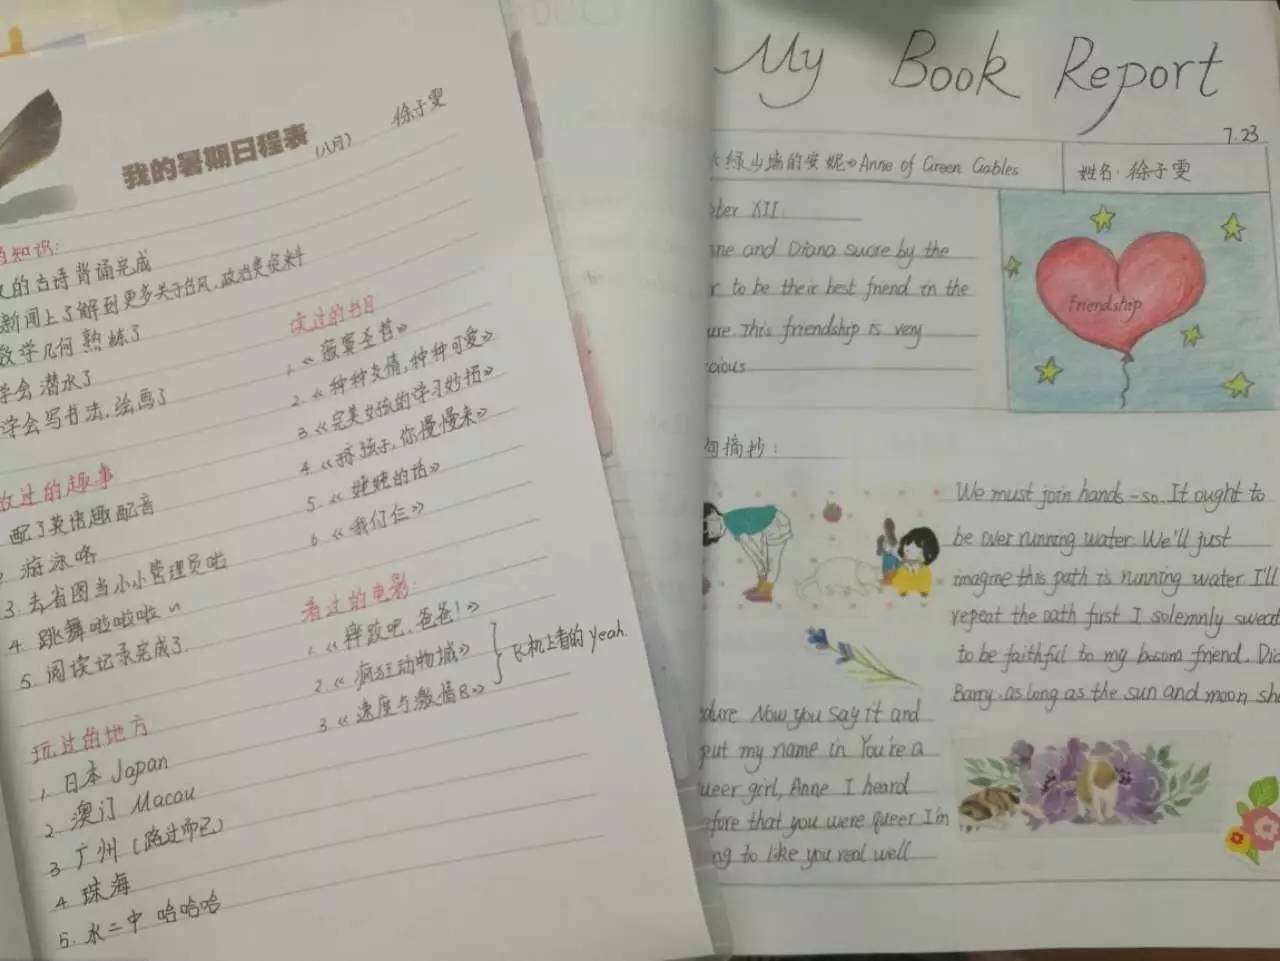 我的暑期日程表 (八月) 徐子雯
知识:
的古诗背诵完成
新闻上了解到更多关于台风,政治类资料
数学几何 熟练了
学会潜水了
学会写书法,绘画了
读过的书目
1. 《寂寞圣哲》
2. 《种种友情,种种可爱》
3. 《完美女孩的学习妙招》
4. 《孩子,你慢慢来》
5. 《姥姥的话》
6. 《我们仨》
过的趣事
配了英语趣配音
游泳咯
3. 去省图当小小管理员啦
4. 跳舞啦啦啦~
5. 阅读记录完成了
看过的电影:
1. 《摔跤吧,爸爸!》
2. 《疯狂动物城》
3. 《速度与激情8》
飞机上看的 Yeah.
玩过的地方
1. 日本 Japan
2. 澳门 Macau
3. 广州 (路过而已)
4. 珠海
5. 水二中 哈哈哈
My Book Report
7.23
绿山墙的安妮》Anne of Green Gables
姓名: 徐子雯
XII
and Diana swore by the
to be their best friend in the
This friendship is very
Friendship
摘抄:
We must join hands-so. It ought to
be over running water. We'll just
imagine this path is running water. I'll
repeat the oath first. I solemnly swear
to be faithful to my bosom friend.
Barry, as long as the sun and moon
Now you say it and
put my name in. You're a
girl, Anne. I heard
that you were queer. I'm
to like you real well